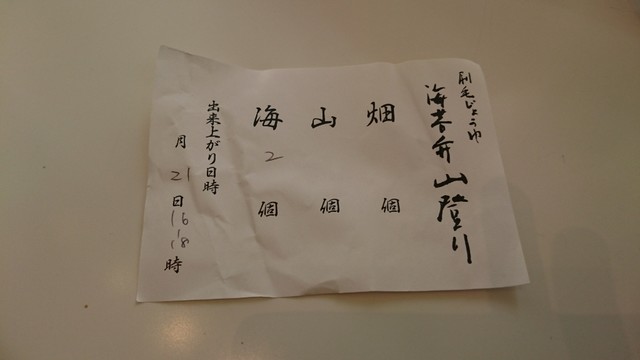 刷毛じょうゆ
海苔弁山登り
畑 個
山 個
海 2 個
出来上がり日時
月 21 日 16 18 時